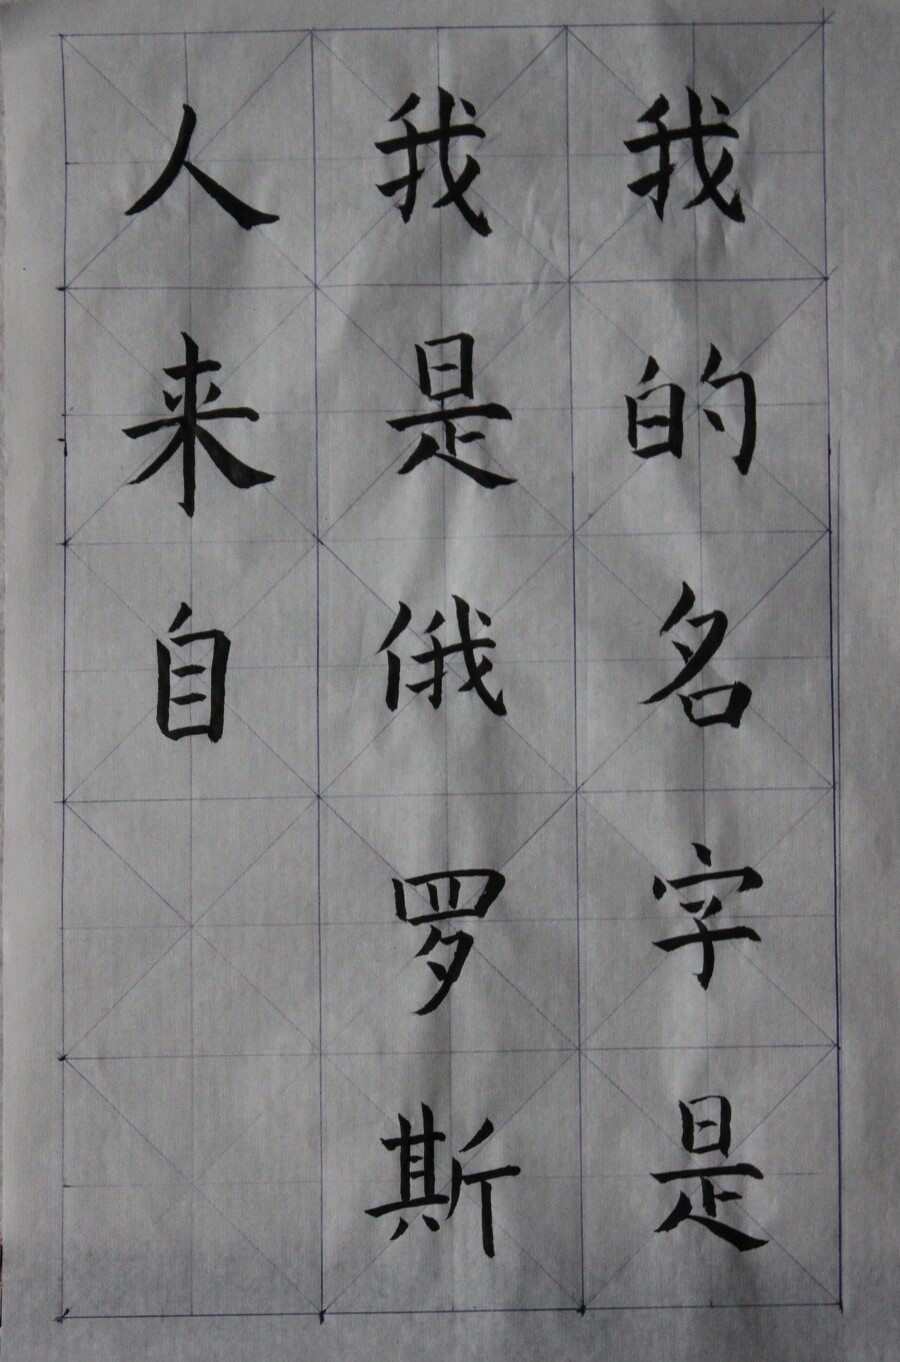 我的名字是
我是俄罗斯
人来自